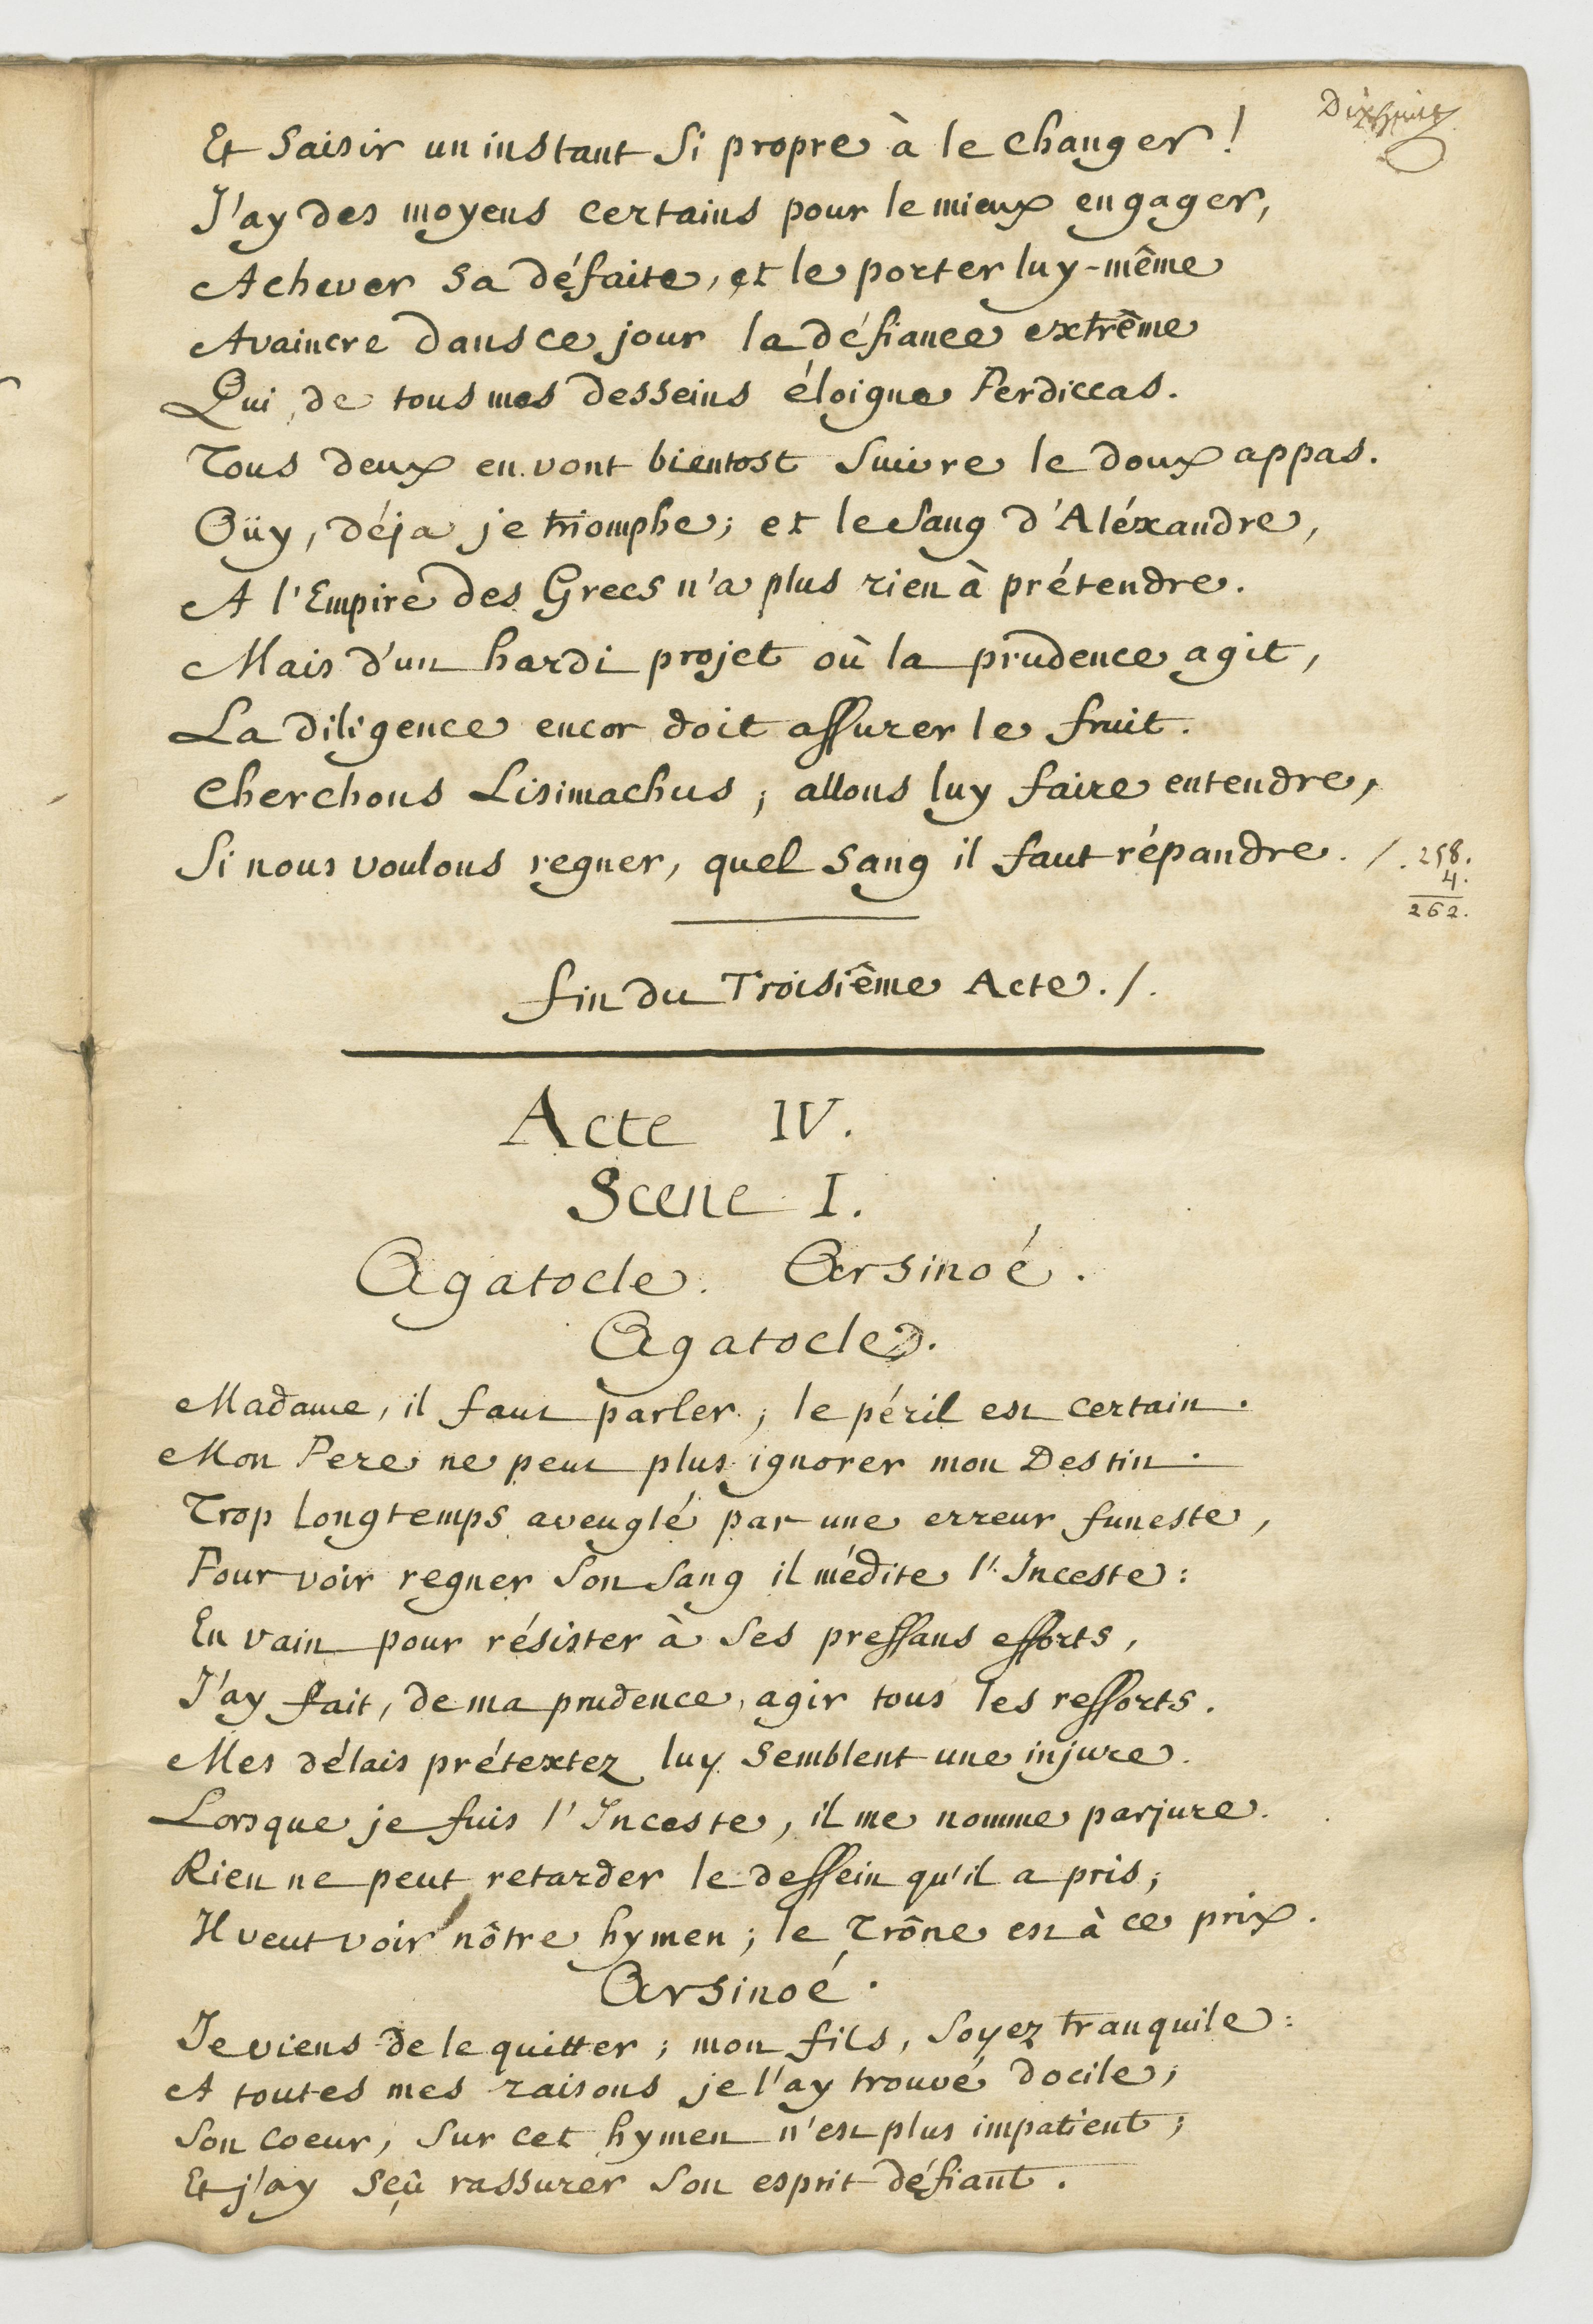 Dixhuit
Et saisir un instant si propre à le changer!
J'ay des moyens certains pour le mieux engager,
Achever sa défaite, et le porter luy-même
A vaincre dans ce jour la défiance extrême
Qui de tous mes desseins éloigne Perdiccas.
Tous deux en vont bientost suivre le doux appas.
Oüy, déja je triomphe; et le sang d'Aléxandre,
A l'Empire des Grecs n'a plus rien à prétendre.
Mais d'un hardi projet où la prudence agit,
La diligence encor doit assurer le fruit.
Cherchons Lisimachus; allons luy faire entendre,
Si nous voulons regner, quel sang il faut répandre. /. 258.
4.
262.
fin du Troisiême Acte. /.
Acte IV.
Scene I.
Agatocle. Arsinoé.
Agatocle.
Madame, il faut parler; le péril est certain.
Mon Pere ne peut plus ignorer mon Destin.
Trop longtemps aveuglé par une erreur funeste,
Pour voir regner son sang il médite l'Inceste:
En vain pour résister à ses pressans efforts,
J'ay fait, de ma prudence, agir tous les ressorts.
Mes délais prétextez luy semblent une injure.
Lorsque je fuis l'Inceste, il me nomme parjure.
Rien ne peut retarder le dessein qu'il a pris;
Il veut voir nôtre hymen; le Trône est à ce prix.
Arsinoé.
Je viens de le quitter; mon fils, soyez tranquile:
A toutes mes raisons je l'ay trouvé docile;
Son coeur, sur cet hymen n'est plus impatient;
Et j'ay sçû rassurer son esprit défiant.